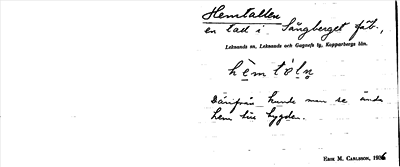 Hemtallen
en tall i Sångberget fäb.,
Leksands sn, Leksands och Gagnefs tg, Kopparbergs län.
hèm tòln
Därifrån kunde man se ända
hem till bygden.
ERIK M. CARLSSON, 1936